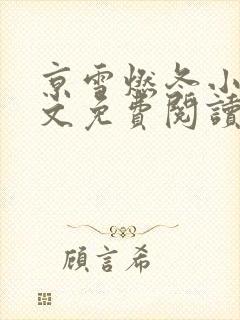 京雪燃冬小
文免費閱讀
顧言希